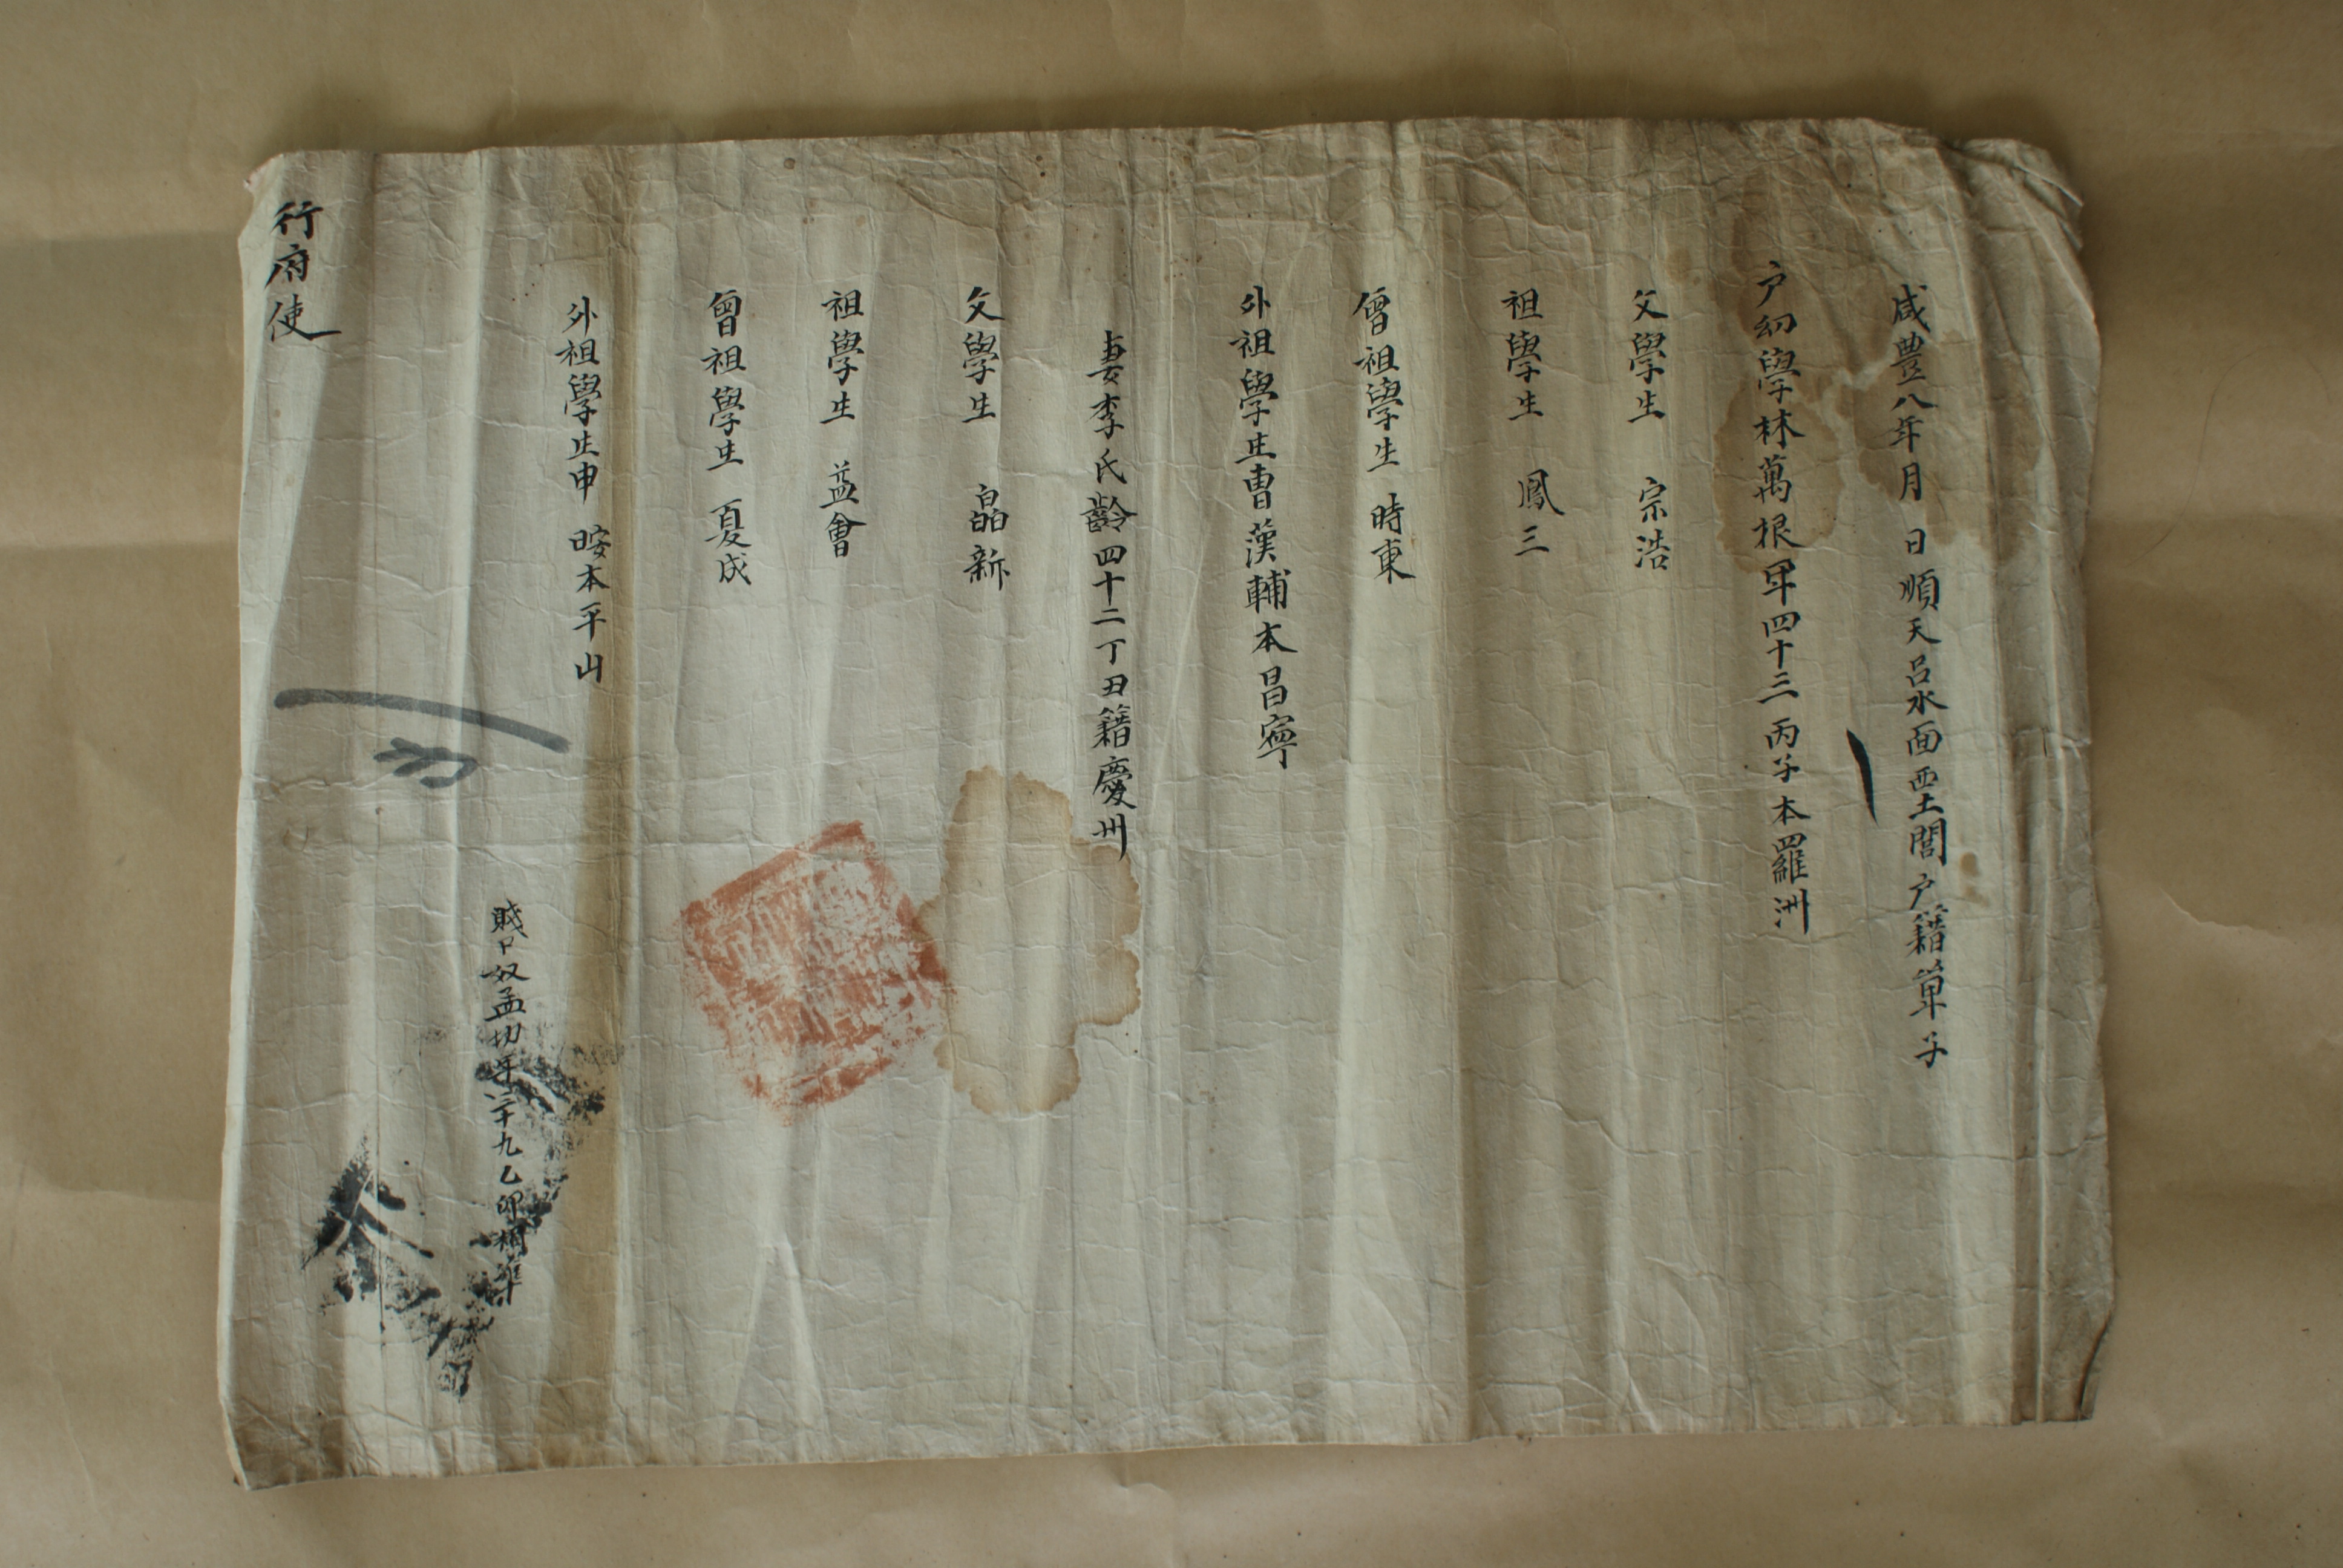 咸豊八年月 日順天呂水面西土閭戸籍單子
戸幼學林萬根年四十三丙子本羅洲
父學生 宗浩
祖學生 鳳三
曾祖學生 時東
外祖學生曺漢輔本昌寧
妻李氏齡四十二丁丑籍慶州
父學生 晶新
祖學生 益會
曾祖學生 夏成
外祖學生申 晈本平山
賤口奴孟切年 十九乙卯
行府使